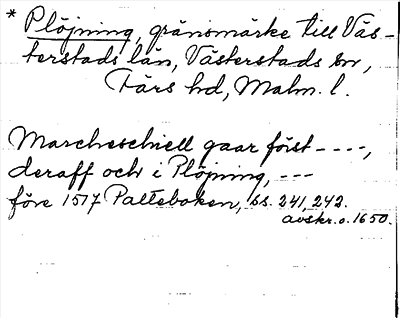 * Plöjning, gränsmärke till Väs-
terstads län, Västerstads sn,
Färs hd, Malm. l.
Marcheschiell gaar först ----,
deraff och i Plöjning, ---
före 1517 Palteboken, ss. 241, 242.
avskr. o. 1650.